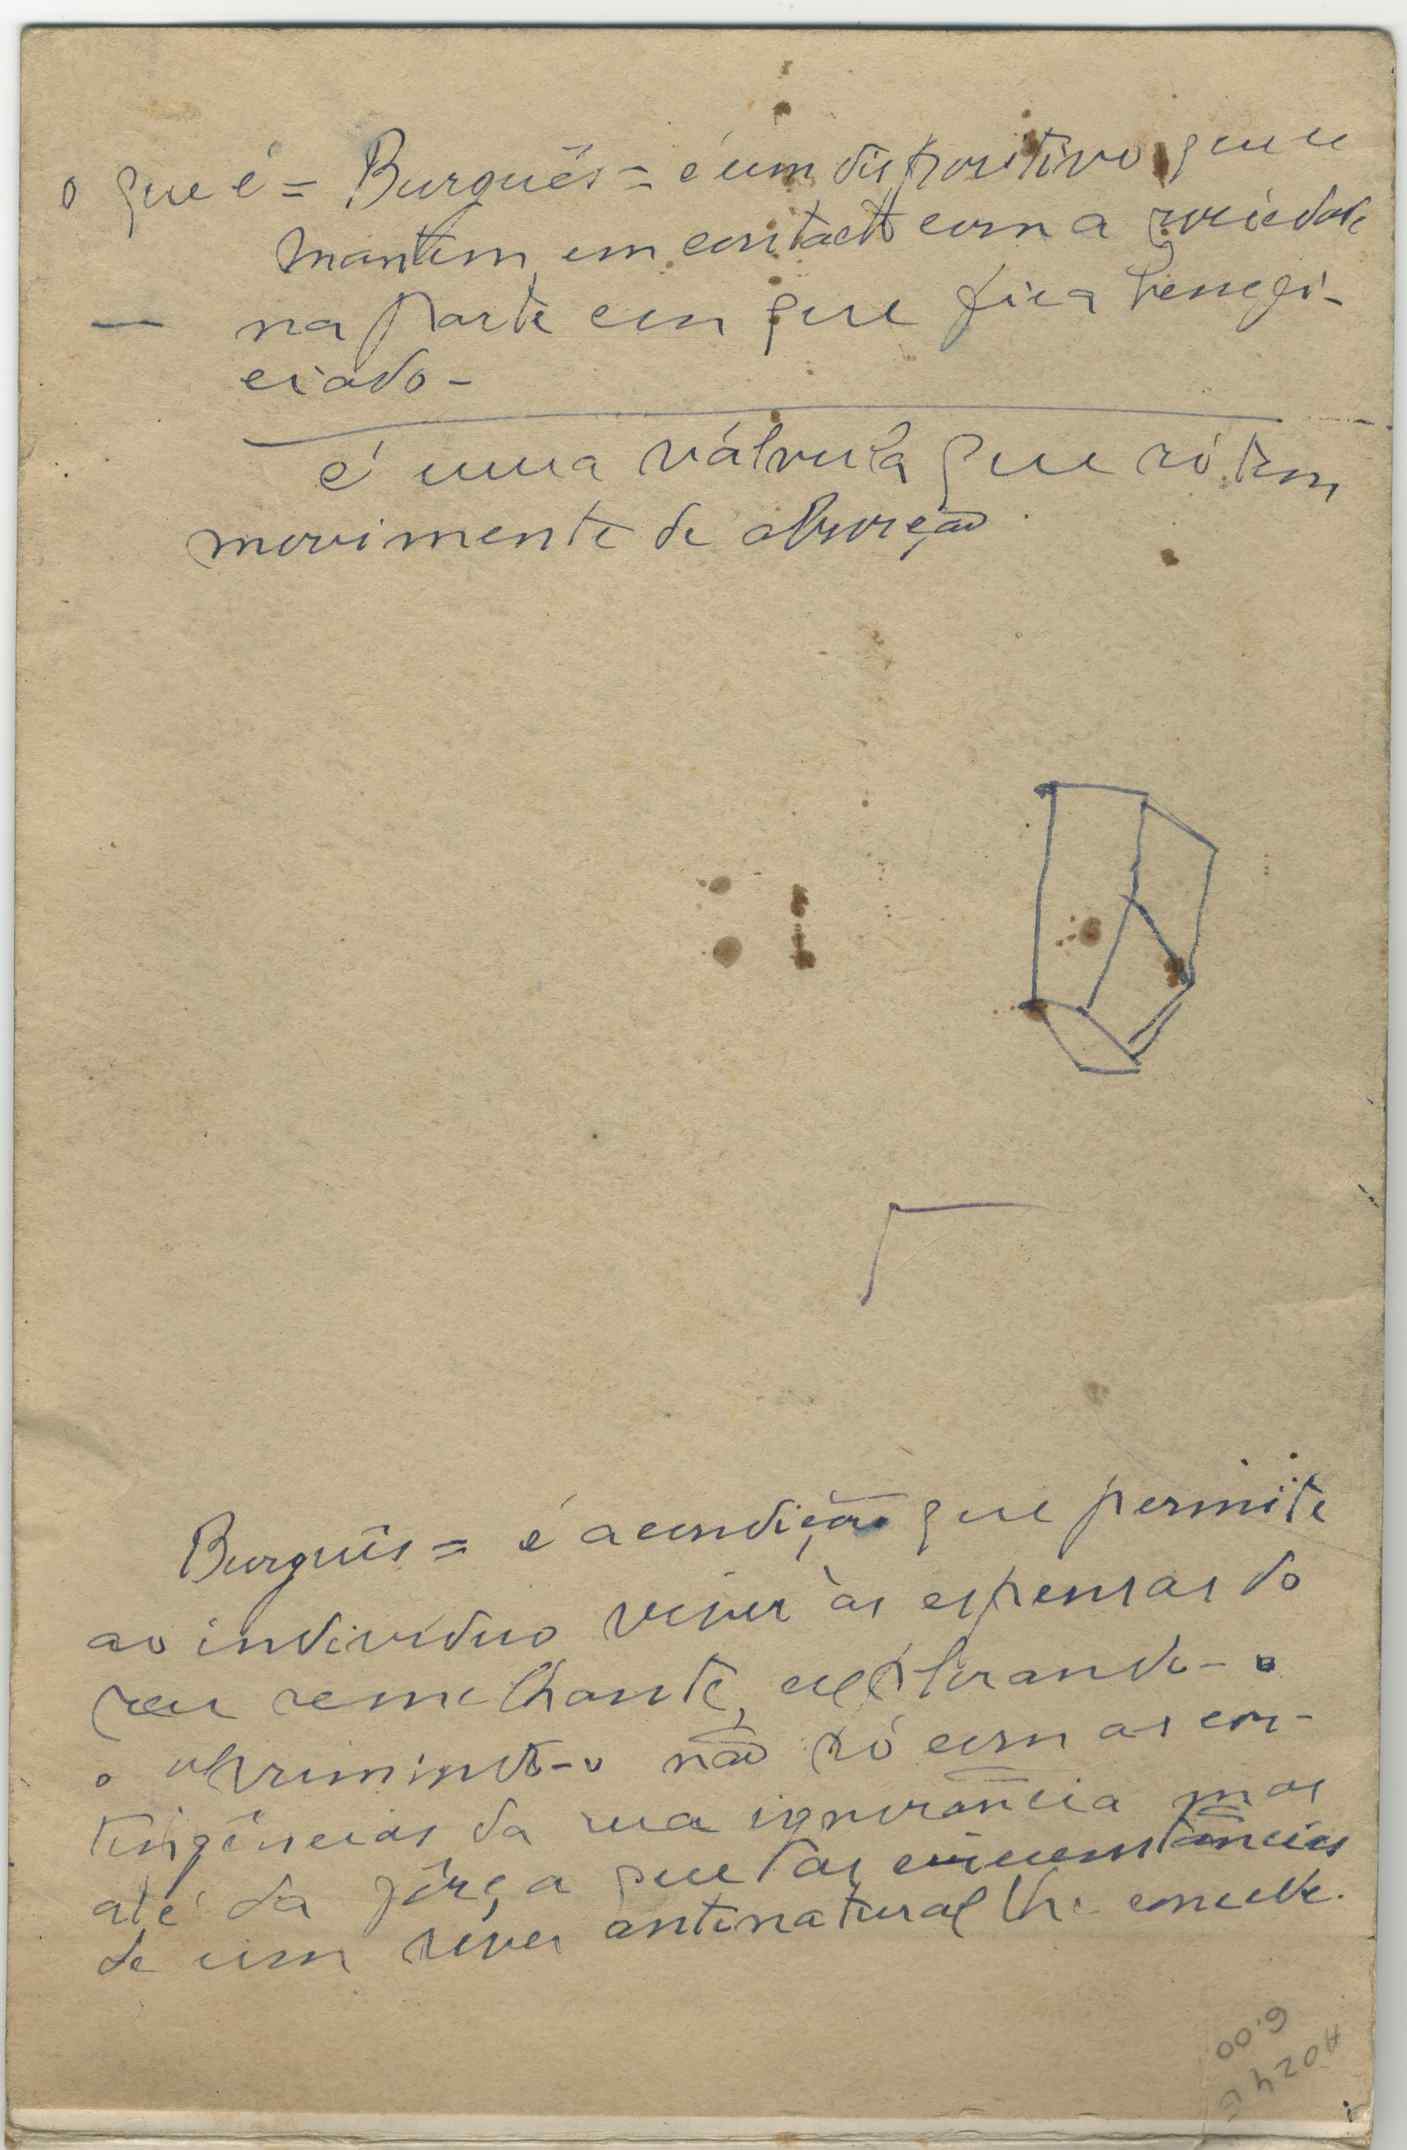 o que é = Burguês = é um dispositivo que se
mantem em contacto com a sociedade
— na parte em que fica benefi-
ciado -
é uma válvula que só tem
movimento de absorção
Burguês = é a condição que permite
ao individuo viver às espensas do
seu semelhante, explorando-o
o oprimindo-o não só com as con-
tingências da sua ignorância mas
até da fôrça que as circunstâncias
de um viver antinatural lhe concede.
6.00
A0245